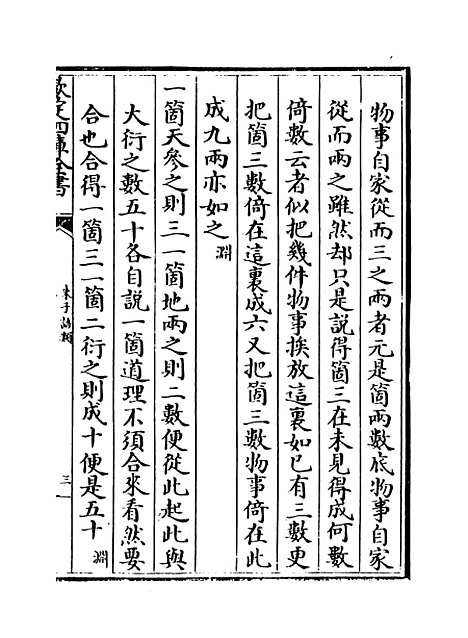 物事自家從而三之兩者元是箇兩數底物事自家
從而兩之雖然却只是說得箇三在未見得成何數
倚數云者似把幾件物事挨放這裏如已有三數更
把箇三數倚在這裏成六又把箇三數物事倚在此
成九兩亦如之淵
一箇天參之則三一箇地兩之則二數便從此起此與
大衍之數五十各自說一箇道理不須合來看然要
合也合得一箇三一箇二衍之則成十便是五十淵
欽定四庫全書
朱子語類
三